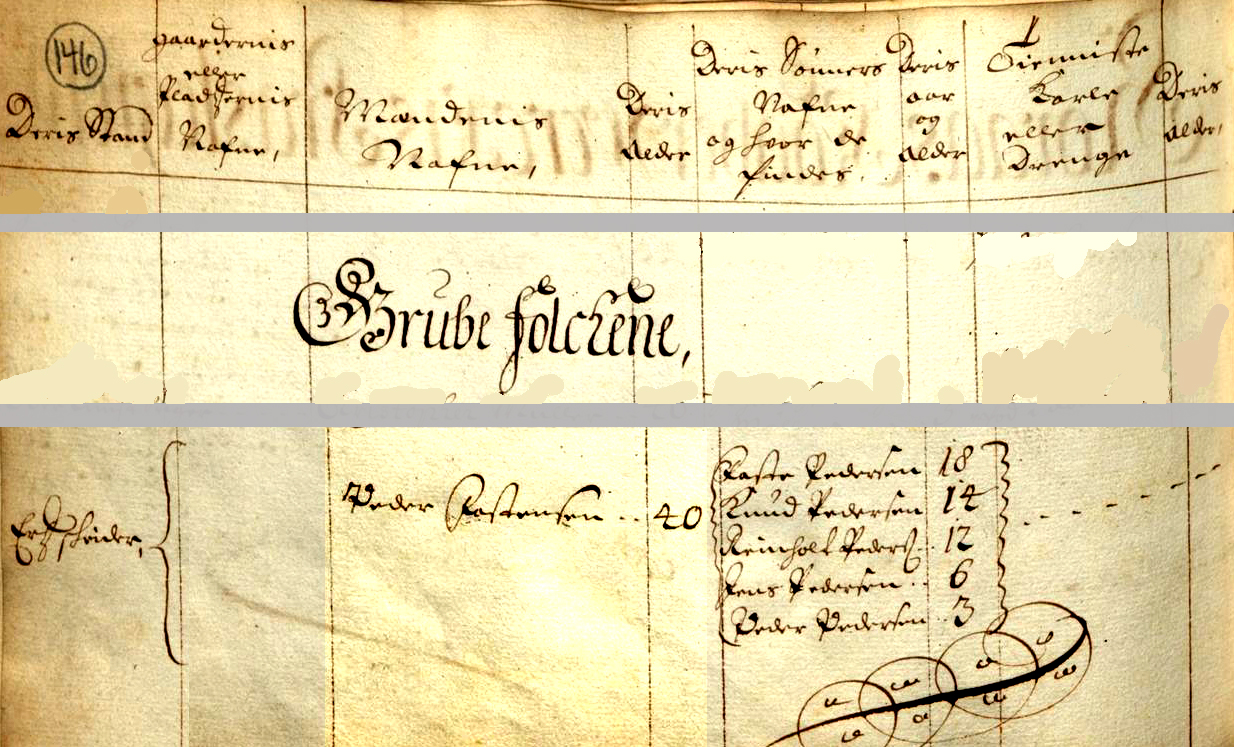 146
Deris Stand
gaardernis
eller
Pladzernis
Nafne,
Mandenis
Nafne,
Deris
Alder
Deris Sønners
Nafne
og hvor de
findes,
Deris
aar
og
Alder
Tienniste
Karle
eller
Drenge
Deris
Alder,
Grube folchene,
Ertzscheider,
Peder Castensen .. 40
Caste Pedersen 18
Knud Pedersen 14
Reinholt Peders. 12
Jens Pedersen .. 6
Peder Pedersen .. 3